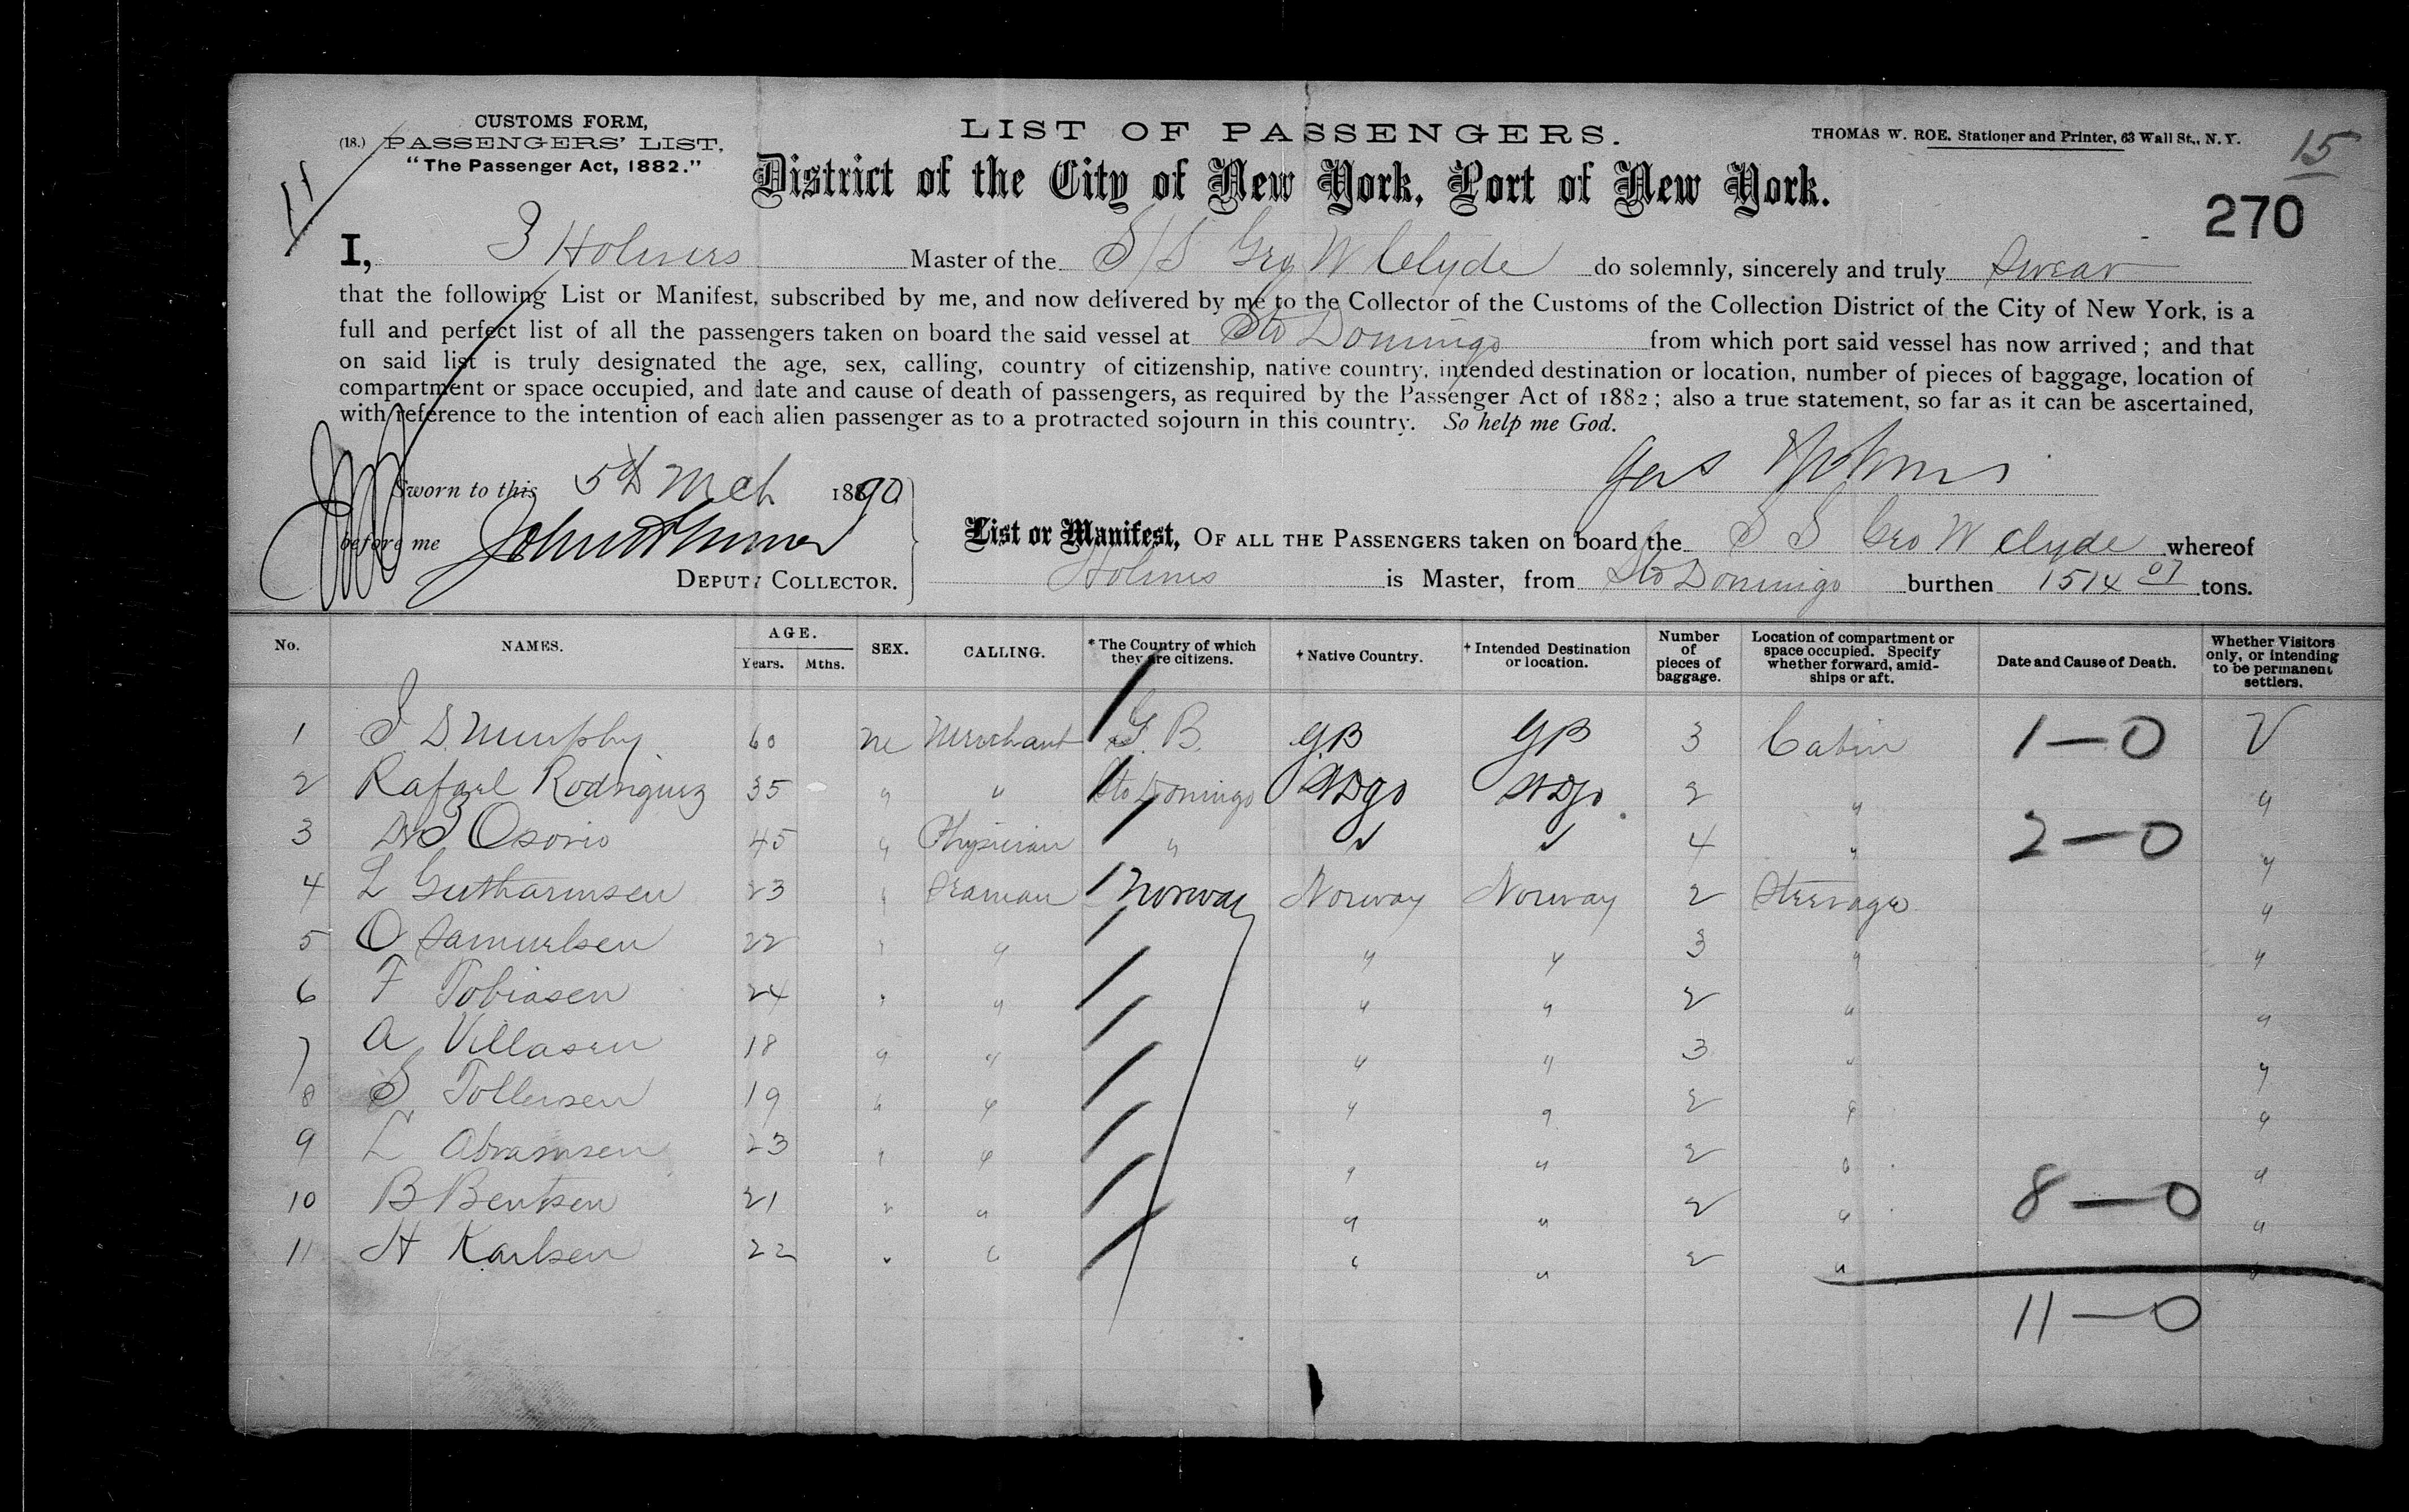 CUSTOMS FORM,
(18.) PASSENGERS' LIST,
"The Passenger Act, 1882."
LIST OF PASSENGERS.
THOMAS W. ROE. Stationer and Printer, 63 Wall St., N. Y.
15
11
District of the City of New York, Port of New York.
270
I, J Holmes Master of the S/S Geo W Clyde do solemnly, sincerely and truly swear
that the following List or Manifest, subscribed by me, and now delivered by me to the Collector of the Customs of the Collection District of the City of New York, is a
full and perfect list of all the passengers taken on board the said vessel at Sto Domingo from which port said vessel has now arrived; and that
on said list is truly designated the age, sex, calling, country of citizenship, native country, intended destination or location, number of pieces of baggage, location of
compartment or space occupied, and date and cause of death of passengers, as required by the Passenger Act of 1882; also a true statement, so far as it can be ascertained,
with reference to the intention of each alien passenger as to a protracted sojourn in this country. So help me God.
Jas Holmes
Sworn to this 5th Mch 1890
before me
DEPUTY COLLECTOR.
List or Manifest, OF ALL THE PASSENGERS taken on board the S S Geo W Clyde whereof
Holmes is Master, from Sto Domingo burthen 1514 07 tons.
No. NAMES. AGE. Years. Mths. SEX. CALLING. * The Country of which they are citizens. † Native Country. † Intended Destination or location. Number of pieces of baggage. Location of compartment or space occupied. Specify whether forward, amidships or aft. Date and Cause of Death. Whether Visitors only, or intending to be permanent settlers.
1 J. D. Murphy 60 m Merchant G. B. GB GB 3 Cabin 1—0 V
2 Rafael Rodriguez 35 " " Sto Domingo StDgo StDgo 2 " "
3 Dr J Osorio 45 " Physician " " " 4 " 2—0 "
4 L Gutharmsen 23 " Seaman Norway Norway Norway 2 Steerage "
5 O Samuelsen 22 " " " " 3 " "
6 F Tobiasen 24 " " " " 2 " "
7 A Villasen 18 " " " " 3 " "
8 S Tollensen 19 " " " " 2 " "
9 L Abramsen 23 " " " " 2 " "
10 B Bentsen 21 " " " " 2 " 8—0 "
11 H Karlsen 22 " " " " 2 " "
11—0